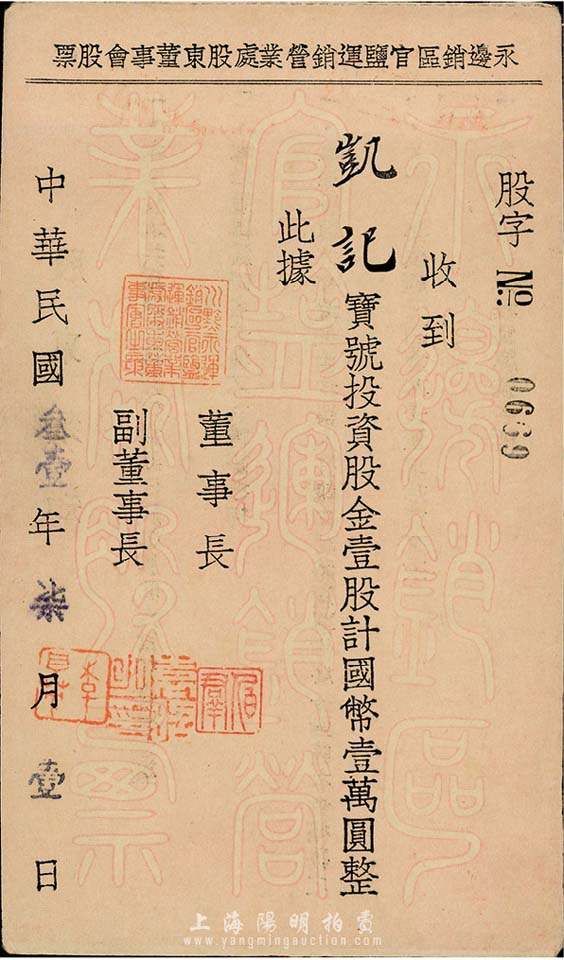 永邊銷區官鹽運銷營業處股東董事會股票
股字 № 0639
收到
凱記寶號投資股金壹股計國幣壹萬圓整
此據
董事長
副董事長
中華民國叁壹年柒月壹日
上海陽明拍賣
www.yangmingauction.com